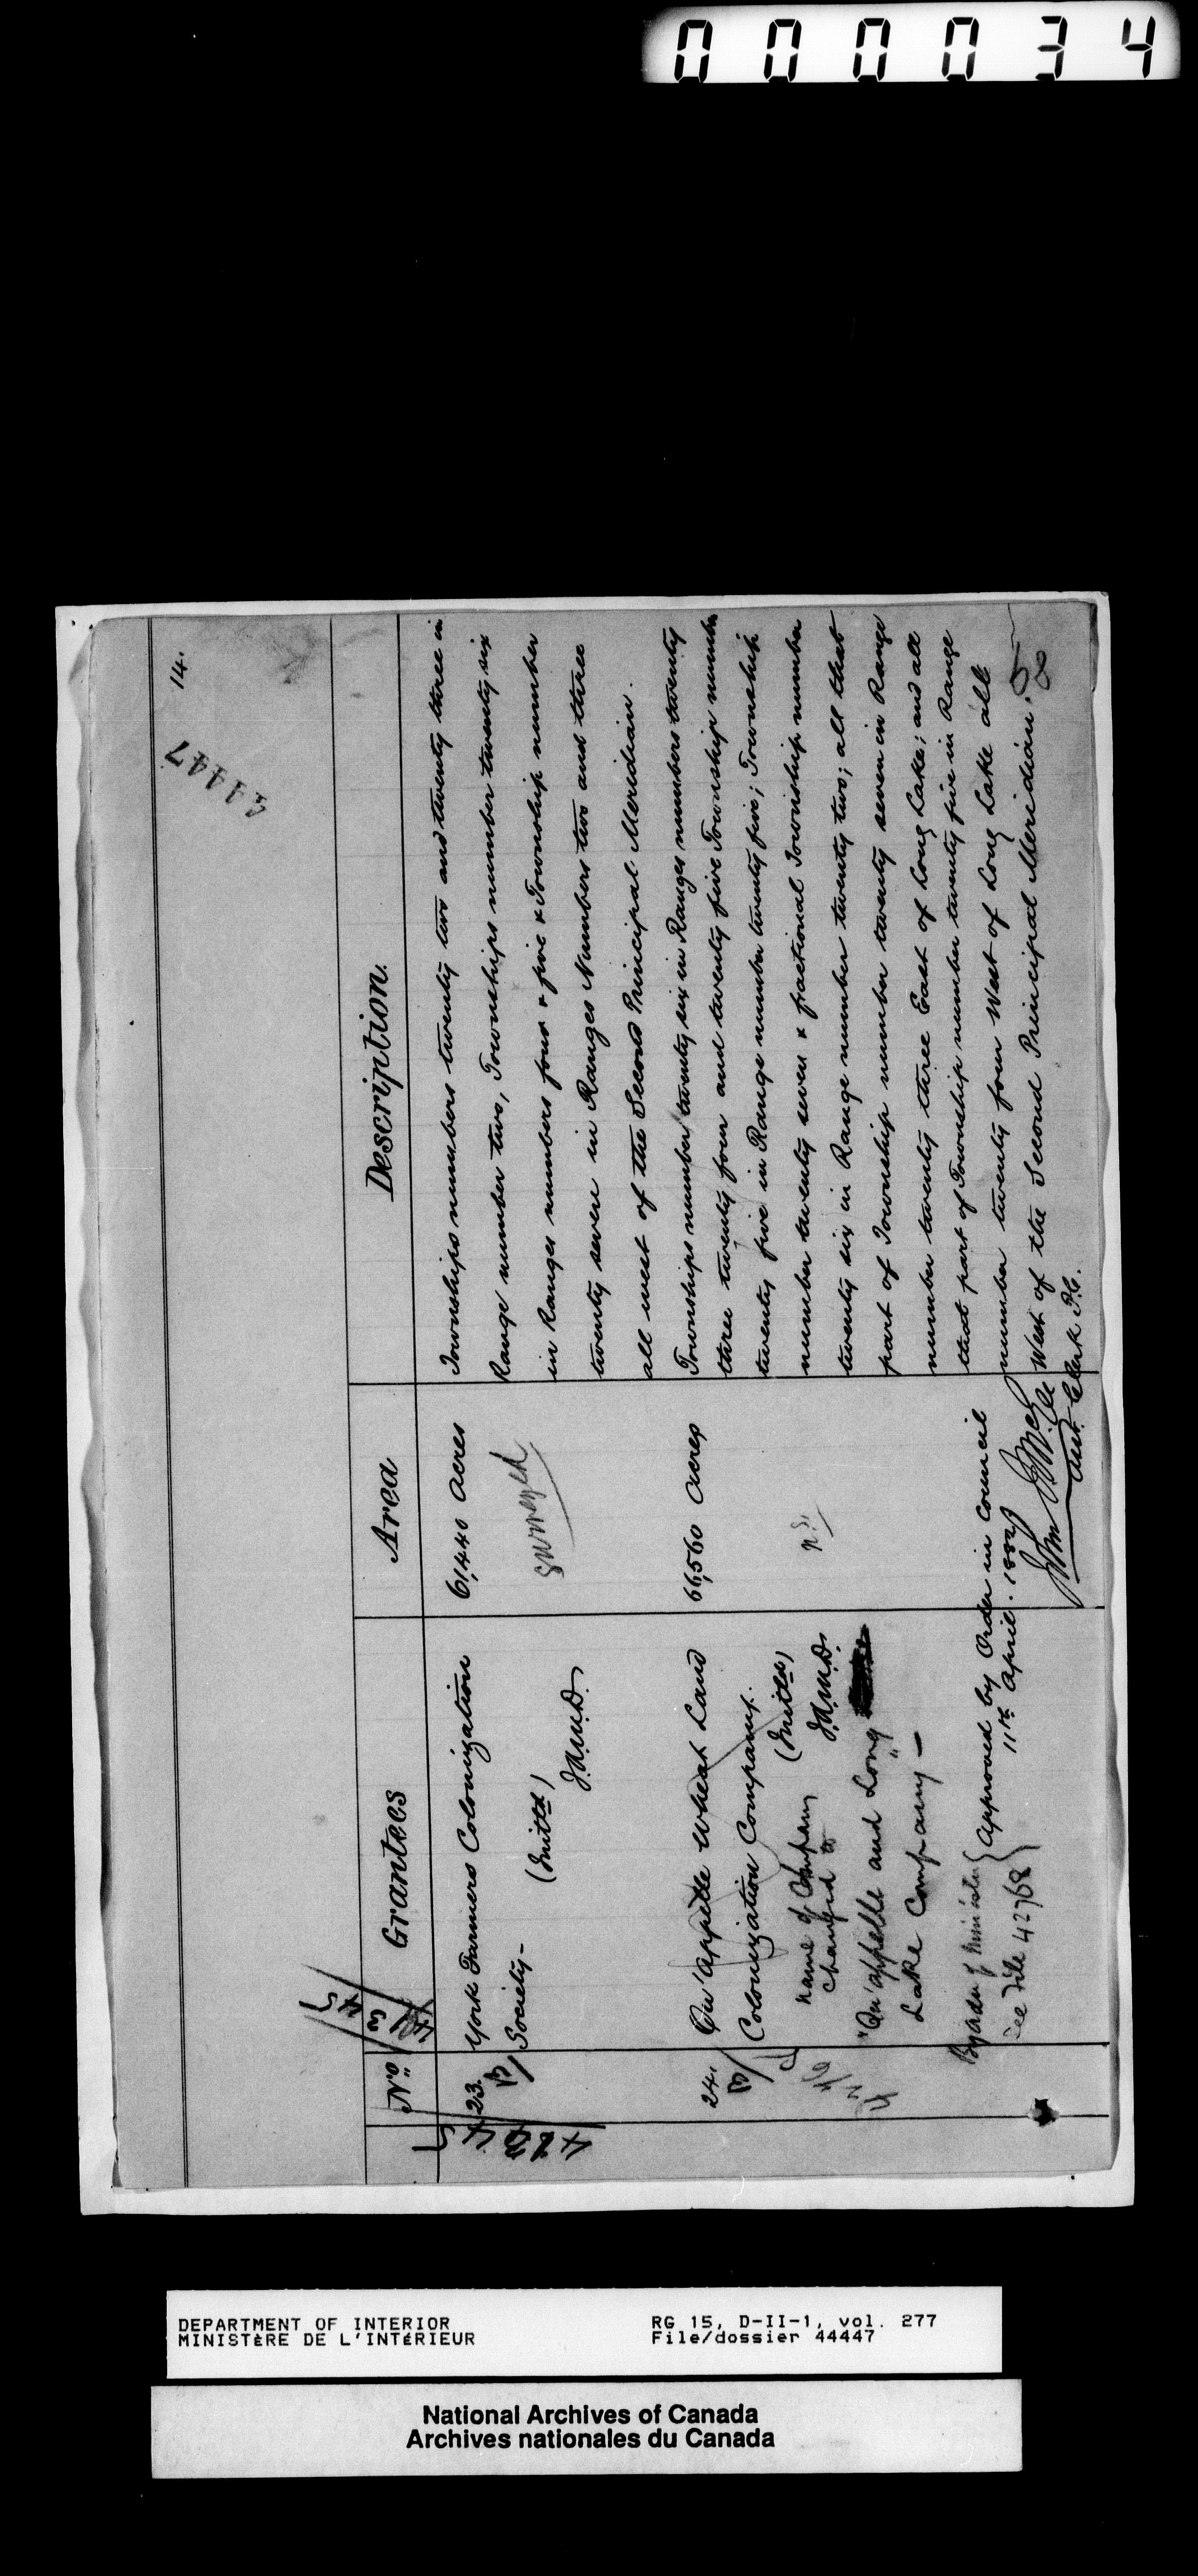 000034
14.
44447
No. Grantees Area Description.
23. York Farmers Colonization
Society -
(Initld)
J.A.McD.
61,440 acres
Surveyed
Townships numbers twenty two and twenty three in
Range number two, Townships number twenty six
in Ranges numbers four & five & Township number
twenty seven in Ranges Numbers two and three
all west of the Second Principal Meridian.
24. Qu'Appelle Wheat Land
Colonization Company.
(Initld)
J.A.McD.
name of Company
changed to
"Qu'appelle and Long
Lake Company" -
66,560 Acres
Townships number twenty six in Ranges numbers twenty
three twenty four and twenty five Township number
twenty five in Range number twenty five; Township
number twenty seven & fractional Township number
twenty six in Range number twenty two; all that
part of Township number twenty seven in Range
number twenty three East of Long Lake; and all
that part of Township number twenty five in Range
number twenty four West of Long Lake all
West of the Second Principal Meridian.
58
By order of Minister
see File 42768
Approved by Order in Council
11th April. 1882
Asst. Clerk P.C.
DEPARTMENT OF INTERIOR
MINISTÈRE DE L'INTÉRIEUR
RG 15, D-II-1, vol. 277
File/dossier 44447
National Archives of Canada
Archives nationales du Canada